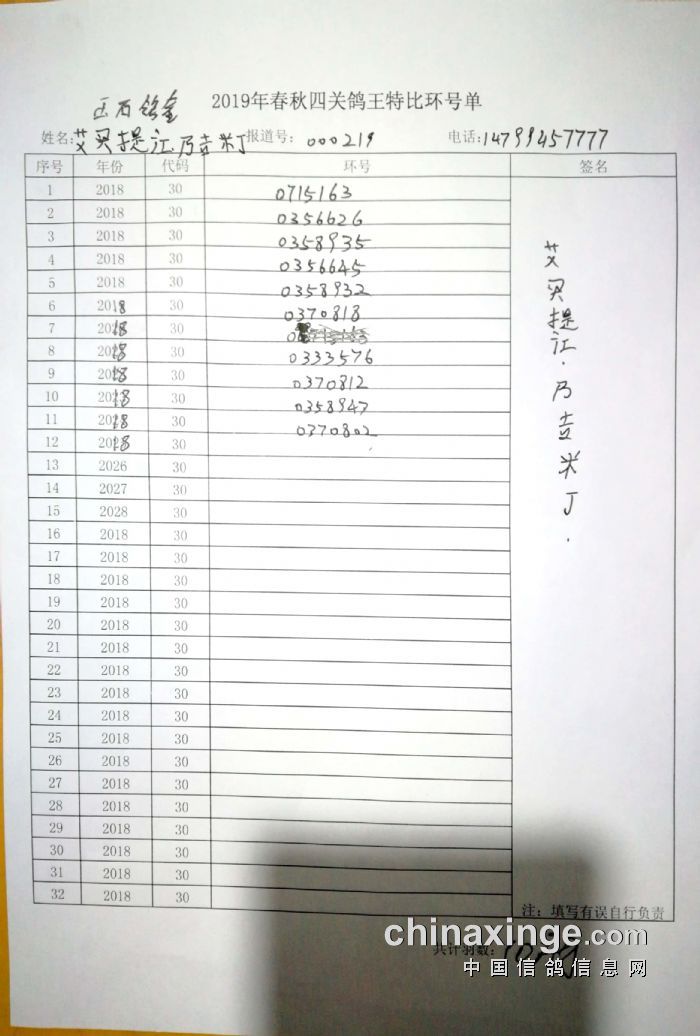 2019年春秋四关鸽王特比环号单
姓名:艾买提江乃吉米丁 报道号: 000219 电话:14799457777
序号 年份 代码 环号 签名
1 2018 30 0715163
2 2018 30 0356626
3 2018 30 0358935
4 2018 30 0356645
5 2018 30 0358932
6 2018 30 0370818
7 2018 30
8 2018 30 0333576
9 2018 30 0370812
10 2018 30 0358947
11 2018 30 0370802
12 2018 30
13 2026 30
14 2027 30
15 2028 30
16 2018 30
17 2018 30
18 2018 30
19 2018 30
20 2018 30
21 2018 30
22 2018 30
23 2018 30
24 2018 30
25 2018 30
26 2018 30
27 2018 30
28 2018 30
29 2018 30
30 2018 30
31 2018 30
32 2018 30
艾买提江·乃吉米丁.
注: 填写有误自行负责
共计羽数:
chinaxinge.com
中国信鸽信息网